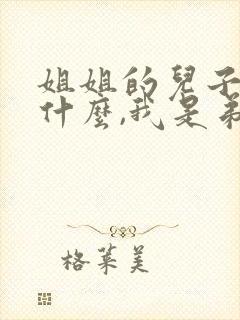 姐姐的兒子
什麼,我是弟
格萊美